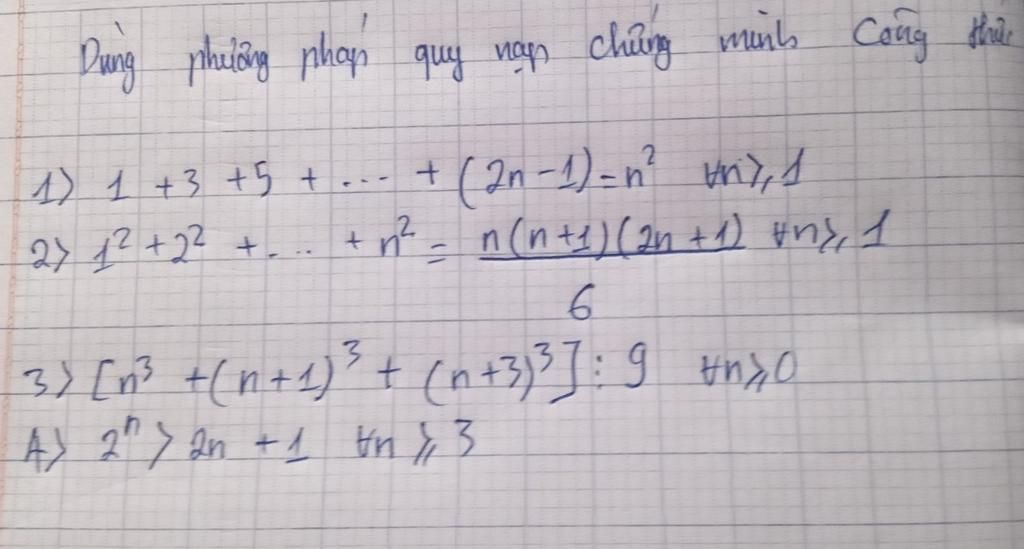 Dùng phương pháp quy nạp chứng minh Công thức
1) 1 + 3 + 5 + ... + (2n - 1) = n² ∀n ≥ 1
2) 1² + 2² + ... + n² = n(n+1)(2n+1) ∀n ≥ 1
6
3) [n³ + (n+1)³ + (n+3)³] : 9 ∀n ≥ 0
4) 2ⁿ > 2n + 1 ∀n ≥ 3